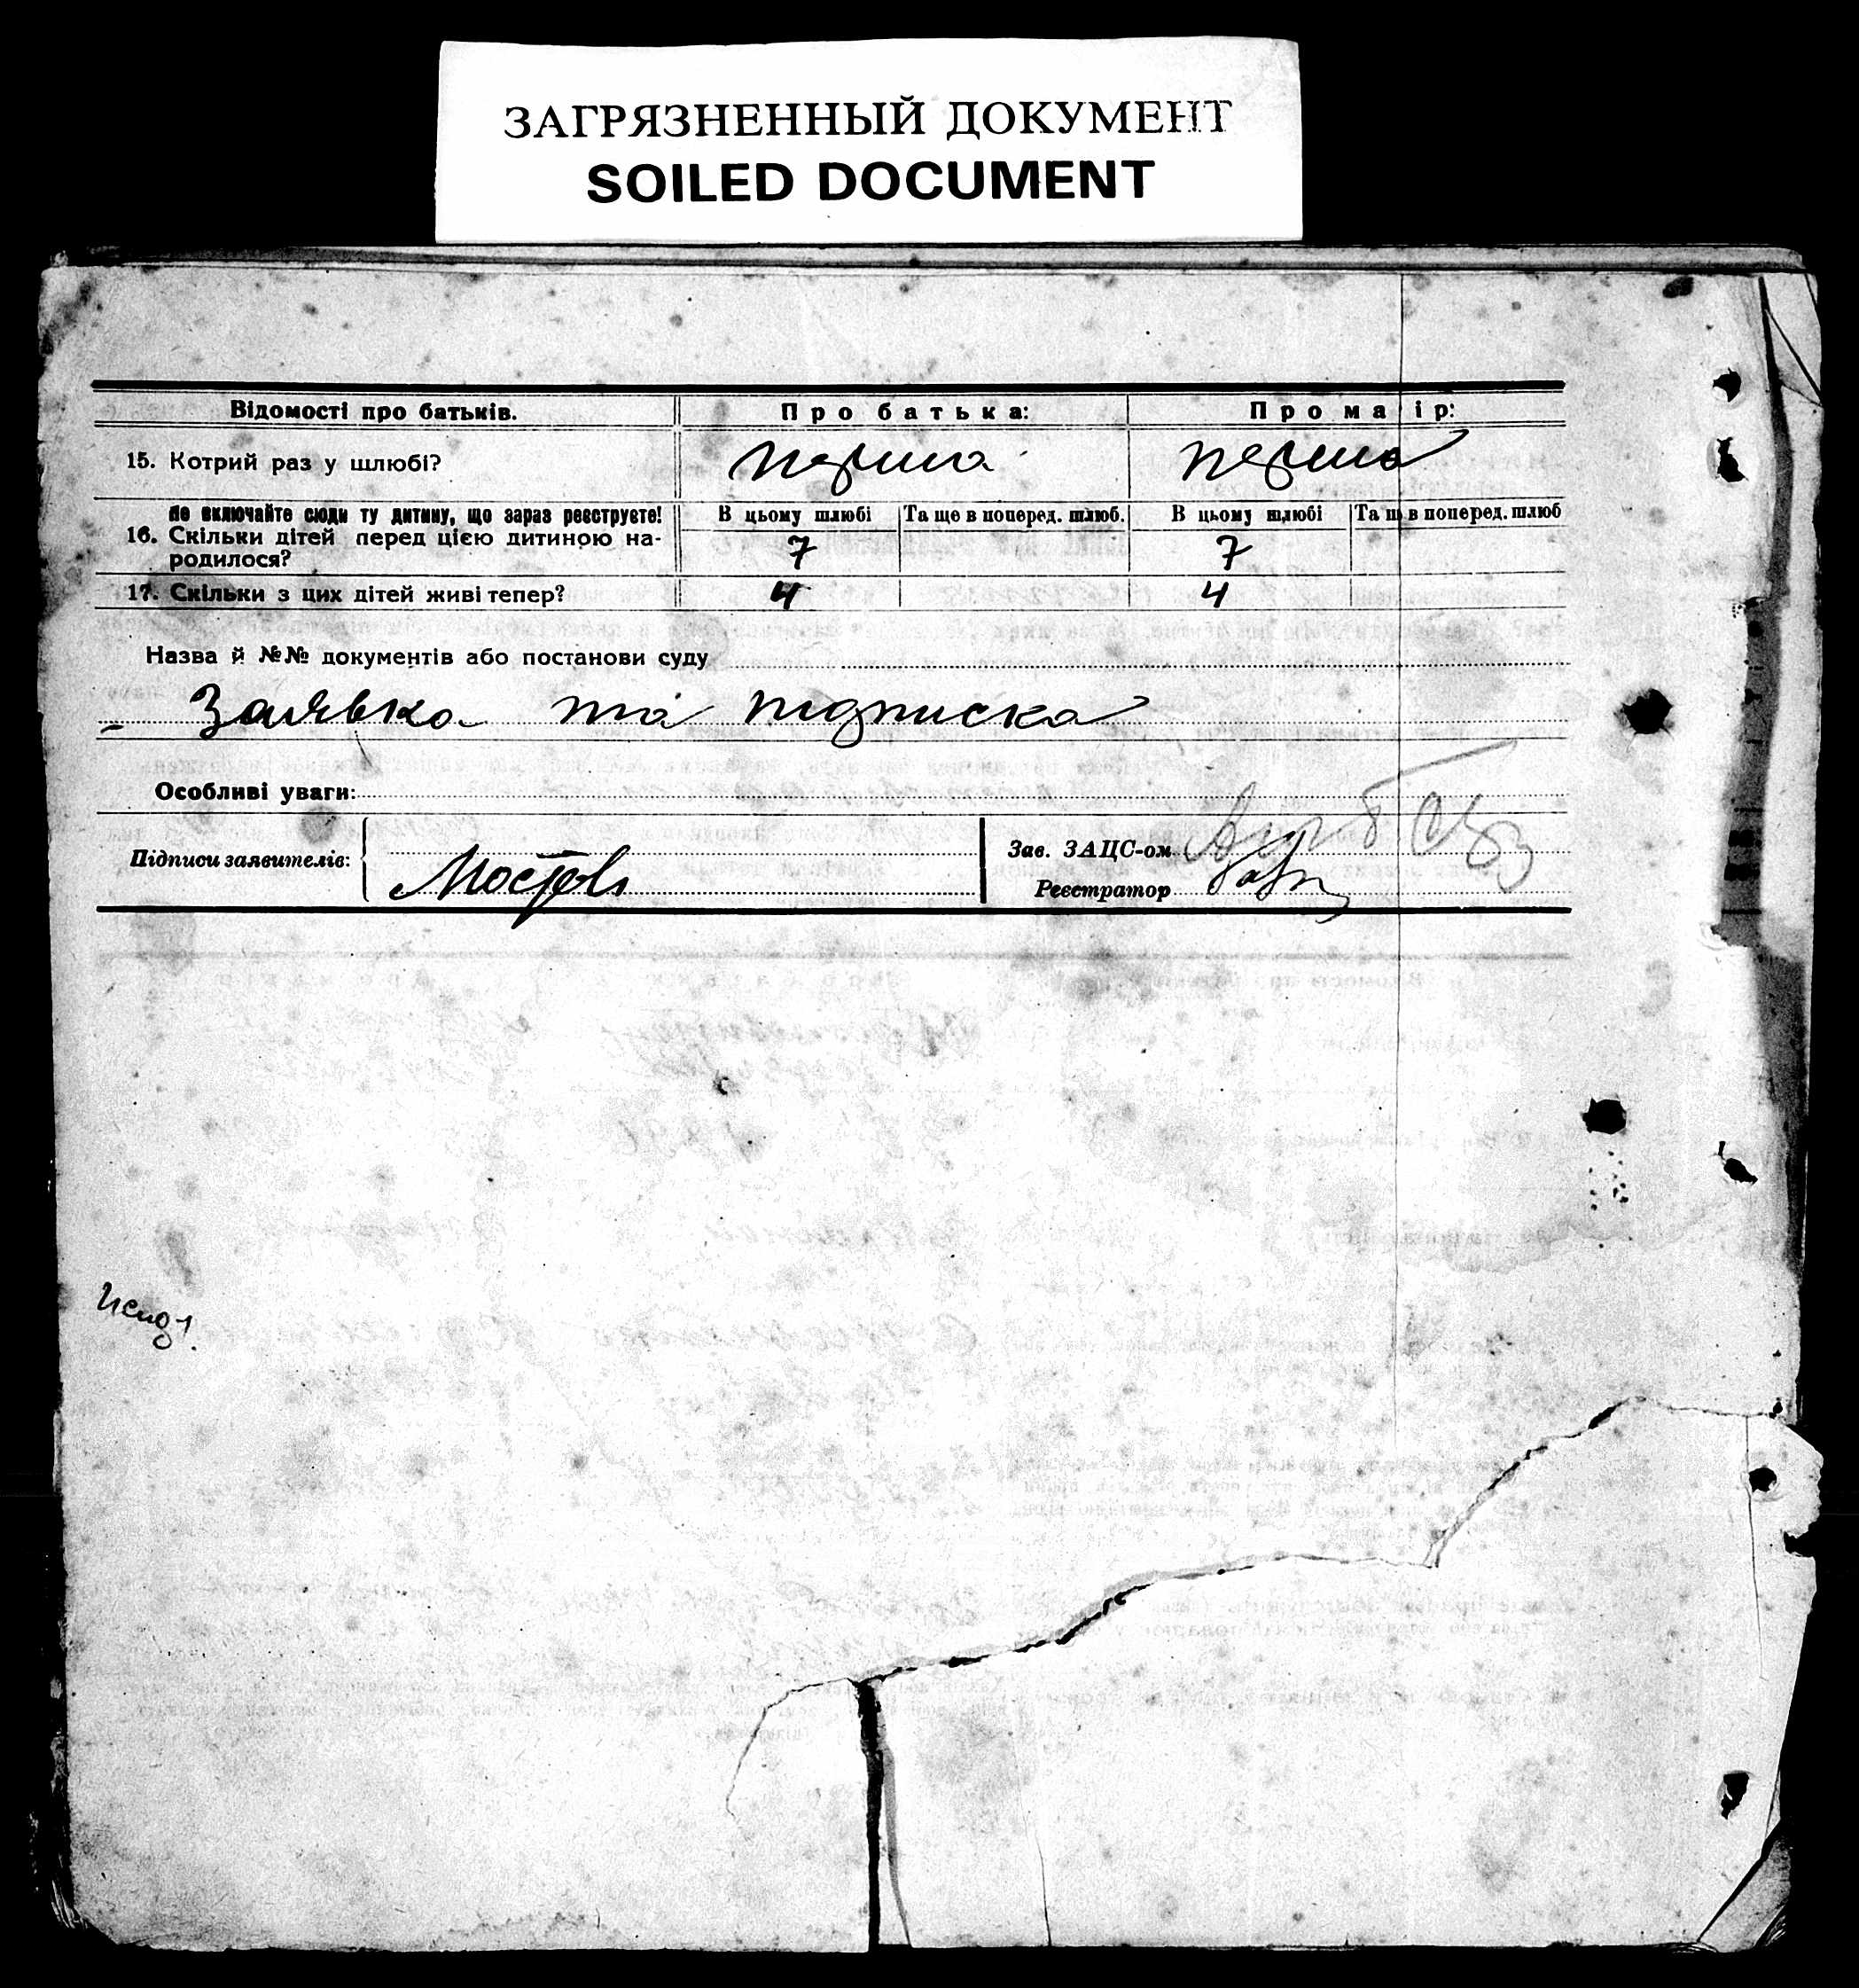 ЗАГРЯЗНЕННЫЙ ДОКУМЕНТ
SOILED DOCUMENT
Відомості про батьків. Про батька: Про ма ір:
15. Котрий раз у шлюбі? перша перша
Не включайте сюди ту дитину, що зараз реєструєте! В цьому шлюбі Та ще в поперед. шлюб. В цьому шлюбі Та щ в поперед. шлюб
16. Скільки дітей перед цією дитиною на-
родилося? 7 7
17. Скільки з цих дітей живі тепер? 4 4
Назва й №№ документів або постанови суду
Заявка та підписка
Особливі уваги:
Підписи заявителів: Зав. ЗАЦС-ом
Реєстратор